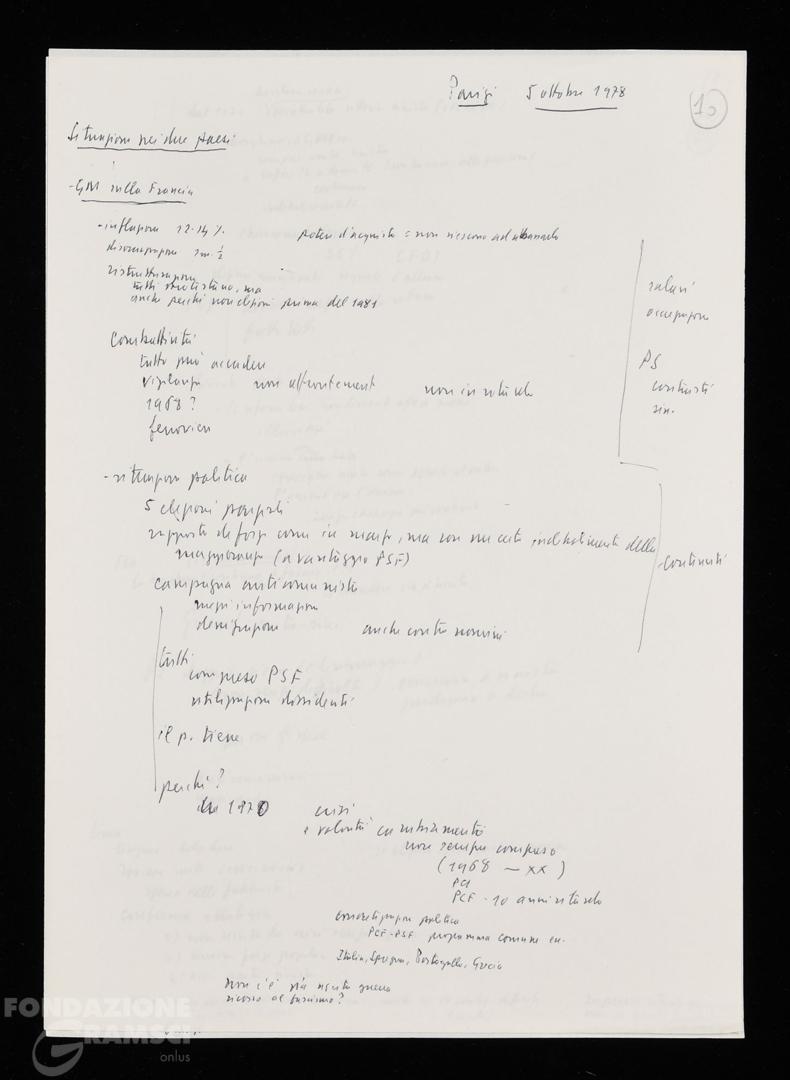 Parigi 5 ottobre 1978
10
Situazione nei due paesi
- GM sulla Francia
- inflazione 12-14%. potere d'acquisto = non riescono ad abbassarlo
disoccupazione 1 m. ½
ristrutturazione
tutti, ma
anche perché non elezioni prima del 1981
salari
occupazione
PS
contrasti
sin.
Combattività
tutto può accadere
vigilanza non affrontement non in ritardo
1968?
ferrovieri
- situazione politica
5 elezioni parziali
rapporto di forze come in marzo, ma con un certo indebolimento della
maggioranza (a vantaggio PSF)
contrasti
campagna anticomunista
mezzi informazione
denigrazione anche contro uomini
tutti
compreso PSF
utilizzazione dissidenti
il p. tiene
perché?
1970 crisi
e volontà cambiamento
non sempre compreso
(1968 - XX)
PCI
PCF - 10 anni ritardo
concretizzazione politica
PCF-PSF programma comune
Italia, Spagna, Portogallo, Grecia
Non c'è più guerra
ricorso al fascismo?
FONDAZIONE
GRAMSCI
onlus